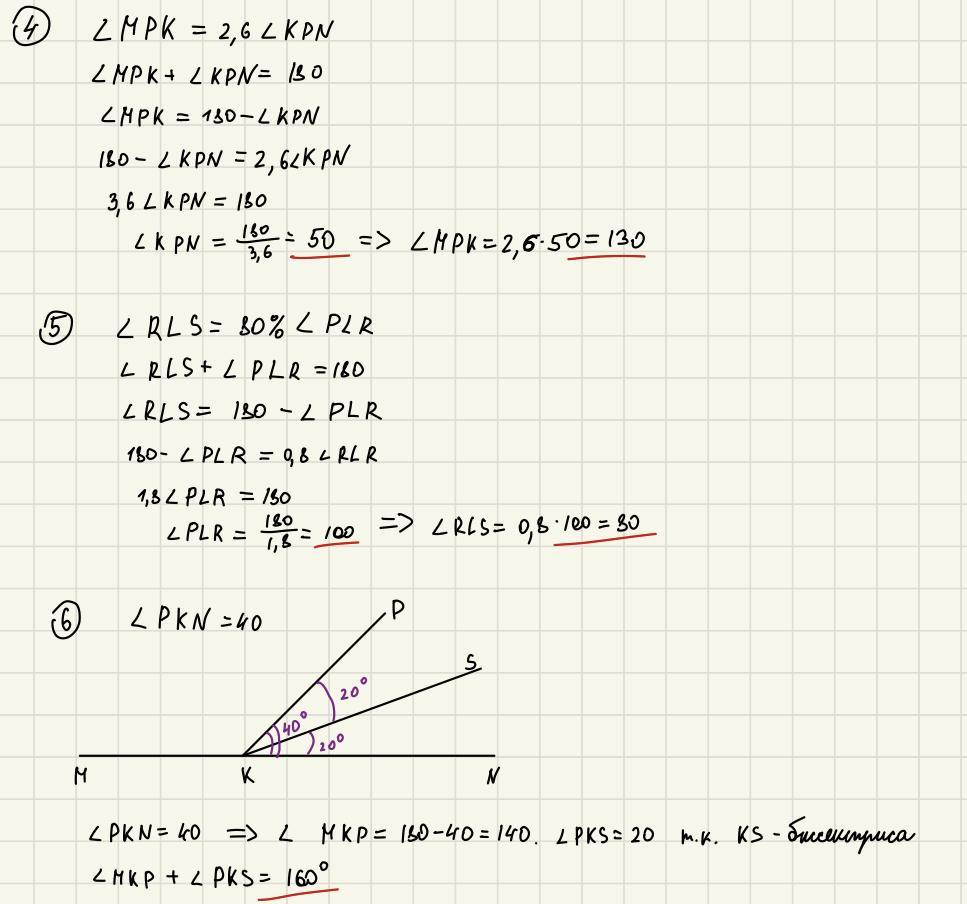 4 ∠MPK = 2,6 ∠KPN
∠MPK + ∠KPN = 180
∠MPK = 180 - ∠KPN
180 - ∠KPN = 2,6∠KPN
3,6 ∠KPN = 180
∠KPN = 180/3,6 = 50 => ∠MPK = 2,6·50 = 130
5 ∠RLS = 80% ∠PLR
∠RLS + ∠PLR = 180
∠RLS = 180 - ∠PLR
180 - ∠PLR = 0,8 ∠RLR
1,8∠PLR = 180
∠PLR = 180/1,8 = 100 => ∠RLS = 0,8·100 = 80
6 ∠PKN = 40
P
S
20°
40°
20°
M K N
∠PKN = 40 => ∠ MKP = 180-40 = 140. ∠PKS = 20 т.к. KS - биссектриса
∠MKP + ∠PKS = 160°